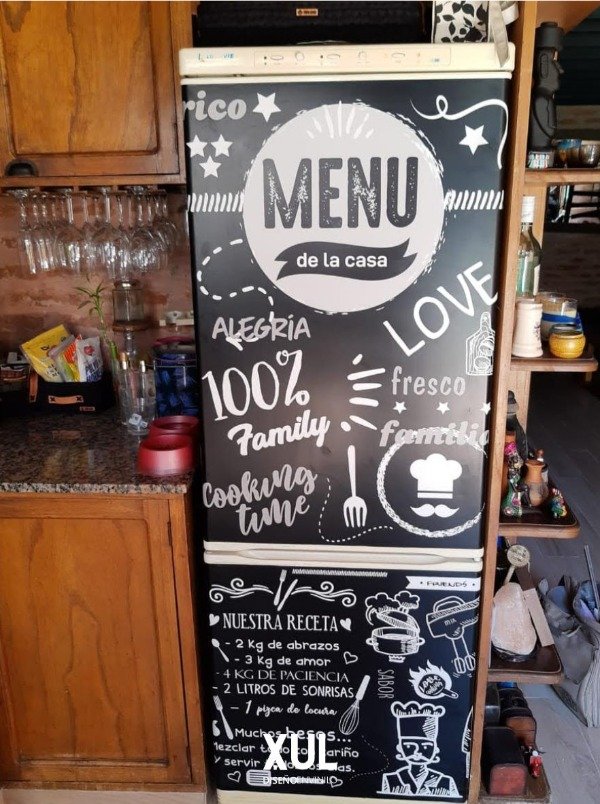 rico
MENU
de la casa
LOVE
ALEGRÍA
100%
Family
fresco
familia
cooking
time
FRIENDS
NUESTRA RECETA
- 2 Kg de abrazos
- 3 Kg de amor
- 4 KG DE PACIENCIA
- 2 LITROS DE SONRISAS
- 1 pizca de locura
SABOR
Muchos besos...
Mezclar todo con cariño
y servir
XUL
DISEÑOENVINILO